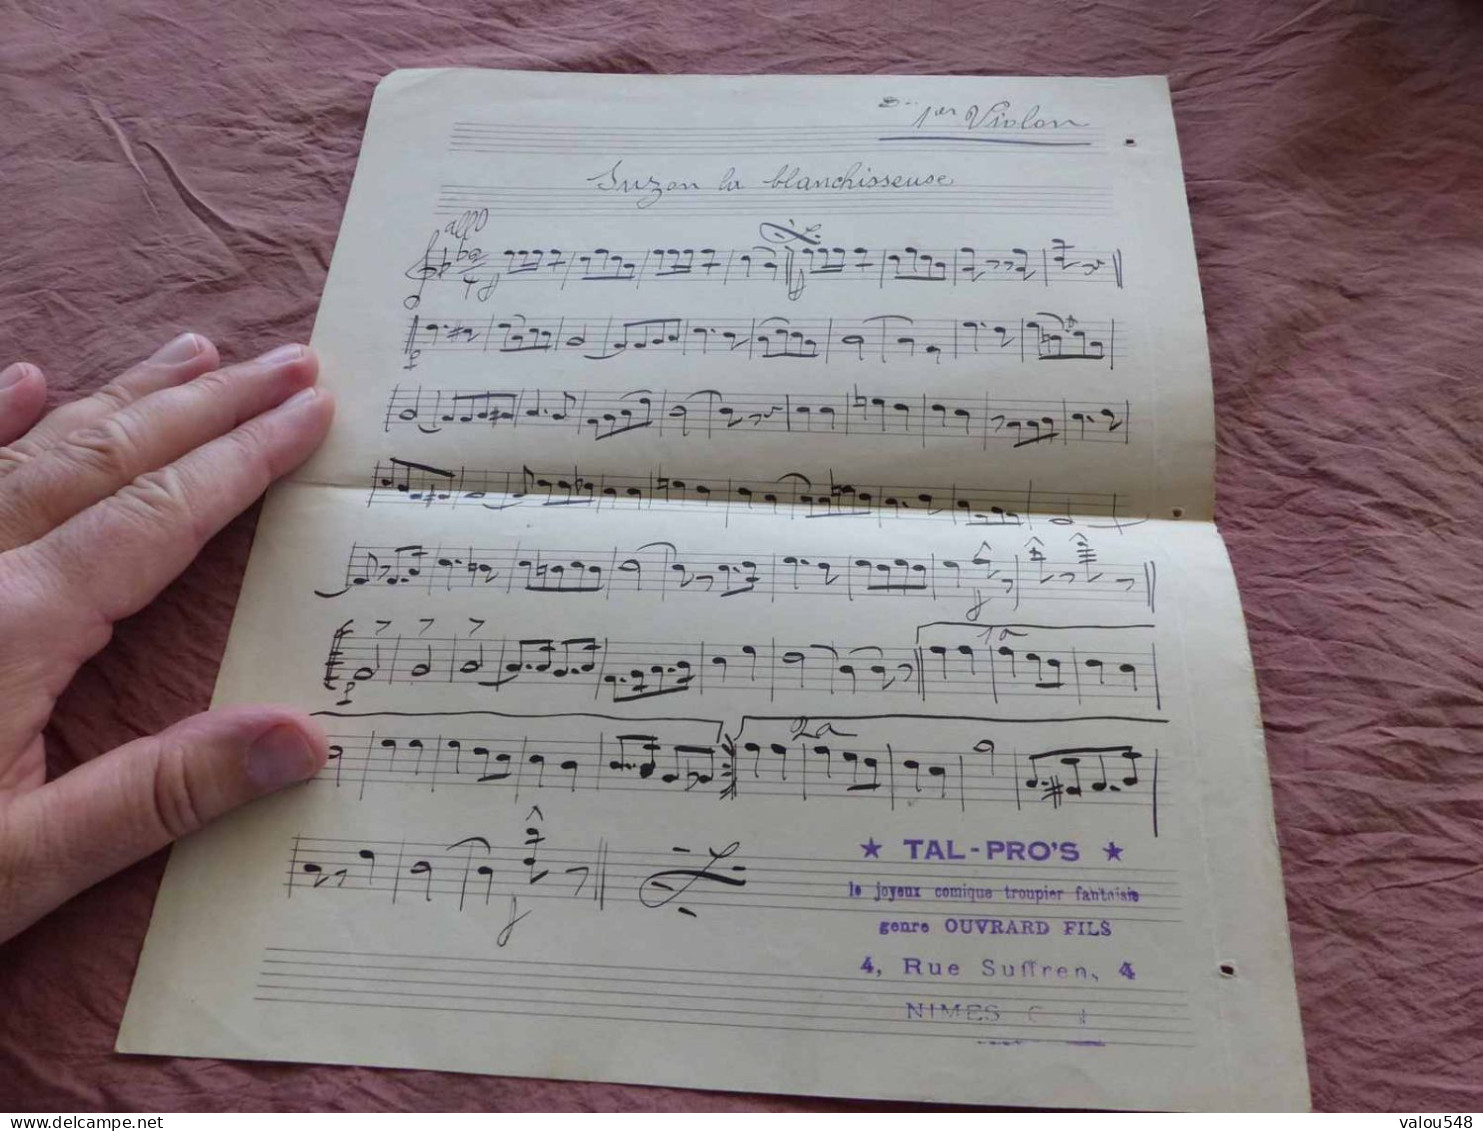 1er Violon
Suzon la blanchisseuse
allo
1a
2a
★ TAL-PRO'S ★
le joyeux comique troupier fantaisie
genre OUVRARD FILS
4, Rue Suffren, 4
NIMES
valou548